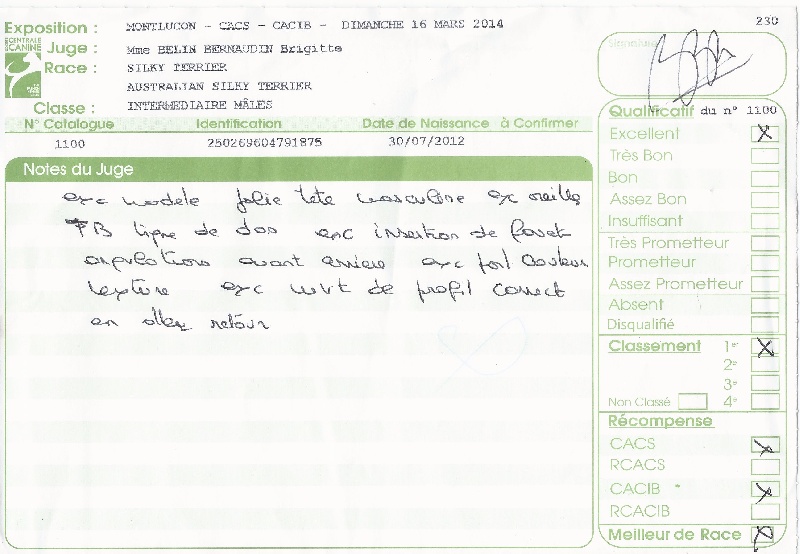 230
Exposition : MONTLUCON - CACS - CACIB - DIMANCHE 16 MARS 2014
CENTRALE
CANINE
Juge : Mme BELIN BERNAUDIN Brigitte
Race : SILKY TERRIER
AUSTRALIAN SILKY TERRIER
Classe : INTERMEDIAIRE MÂLES
N° Catalogue Identification Date de Naissance à Confirmer
1100 250269604791875 30/07/2012
Notes du Juge
exc modele jolie tête masculine ex oreilles
TB ligne de dos exc insertion de fouet
angulations avant arriere exc poil couleur
texture exc mvt de profil correct
en aller retour
Signature
Qualificatif du n° 1100
Excellent X
Très Bon
Bon
Assez Bon
Insuffisant
Très Prometteur
Prometteur
Assez Prometteur
Absent
Disqualifié
Classement 1er X
2e
3e
Non Classé 4e
Récompense
CACS X
RCACS
CACIB X
RCACIB
Meilleur de Race X